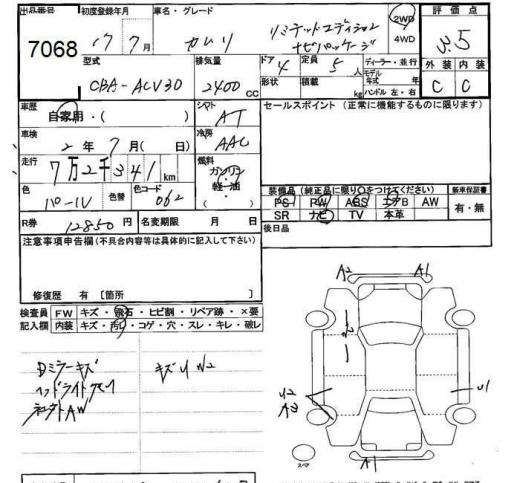 出品番号 初度登録年月 車名・グレード 評価点
7068 17 7月 カムリ リミテッドエディション
ナビパッケージ
2WD
4WD
3.5
型式 排気量 ドア 定員 ディーラー・並行 外装 内装
CBA-ACV30 2400 CC 4 5人 モデル年式 年 C C
形状 積載 kg ハンドル 左・右
車歴 シフト セールスポイント (正常に機能するものに限ります)
自家用・( ) AT
車検 冷房
2年 7月( 日) AAC
走行 燃料
7万2千341km ガソリン
軽油
( )
色 色替 色コード
パール 062
装備品 (純正品に限り○をつけてください) 新車保証書
PS PW ABS エアB AW 有・無
SR ナビ TV 本革
R券 12850円 名変期限 月 日 後日品
注意事項申告欄(不具合内容等は具体的に記入して下さい)
修復歴 有 [箇所 ]
検査員 FW キズ・飛石・ヒビ割・リペア跡・×要
記入欄 内装 キズ・汚れ・コゲ・穴・スレ・キレ・破レ
Dミラーキズ キズU W2
ヘッドライト
AW
A2 A1
U2 U1
A1
スペア